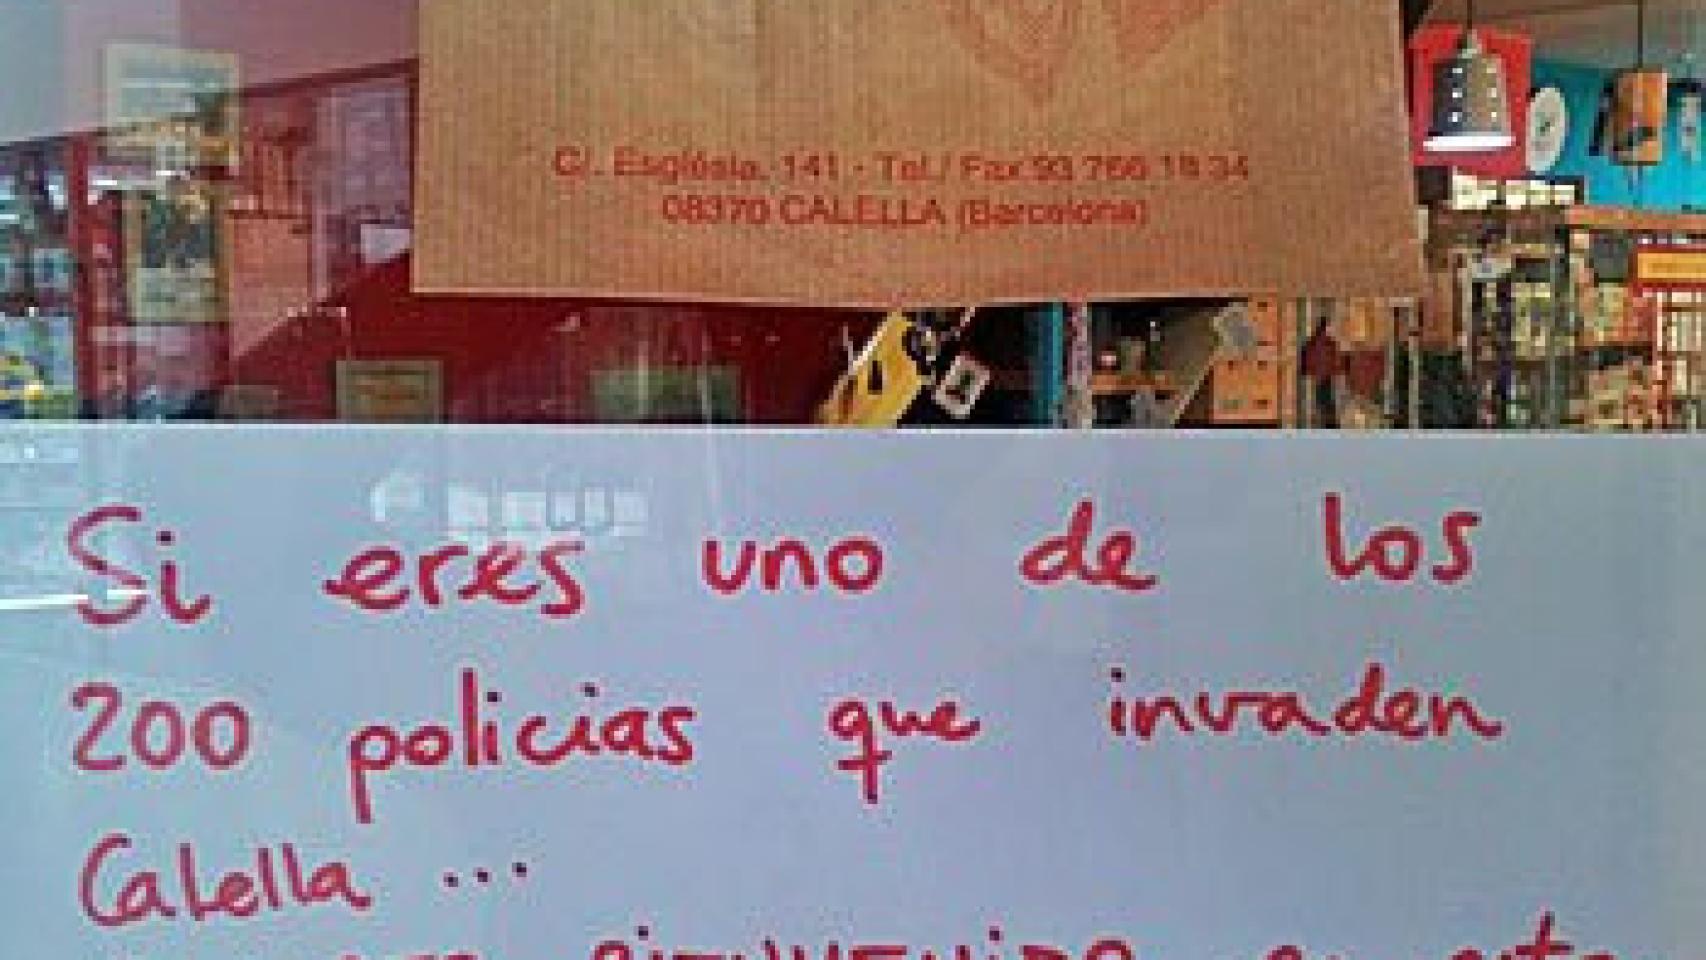 C/. Església, 141 - Tel./ Fax 93 766 18 34
08370 CALELLA (Barcelona)
Si eres uno de los
200 policias que invaden
Calella ...